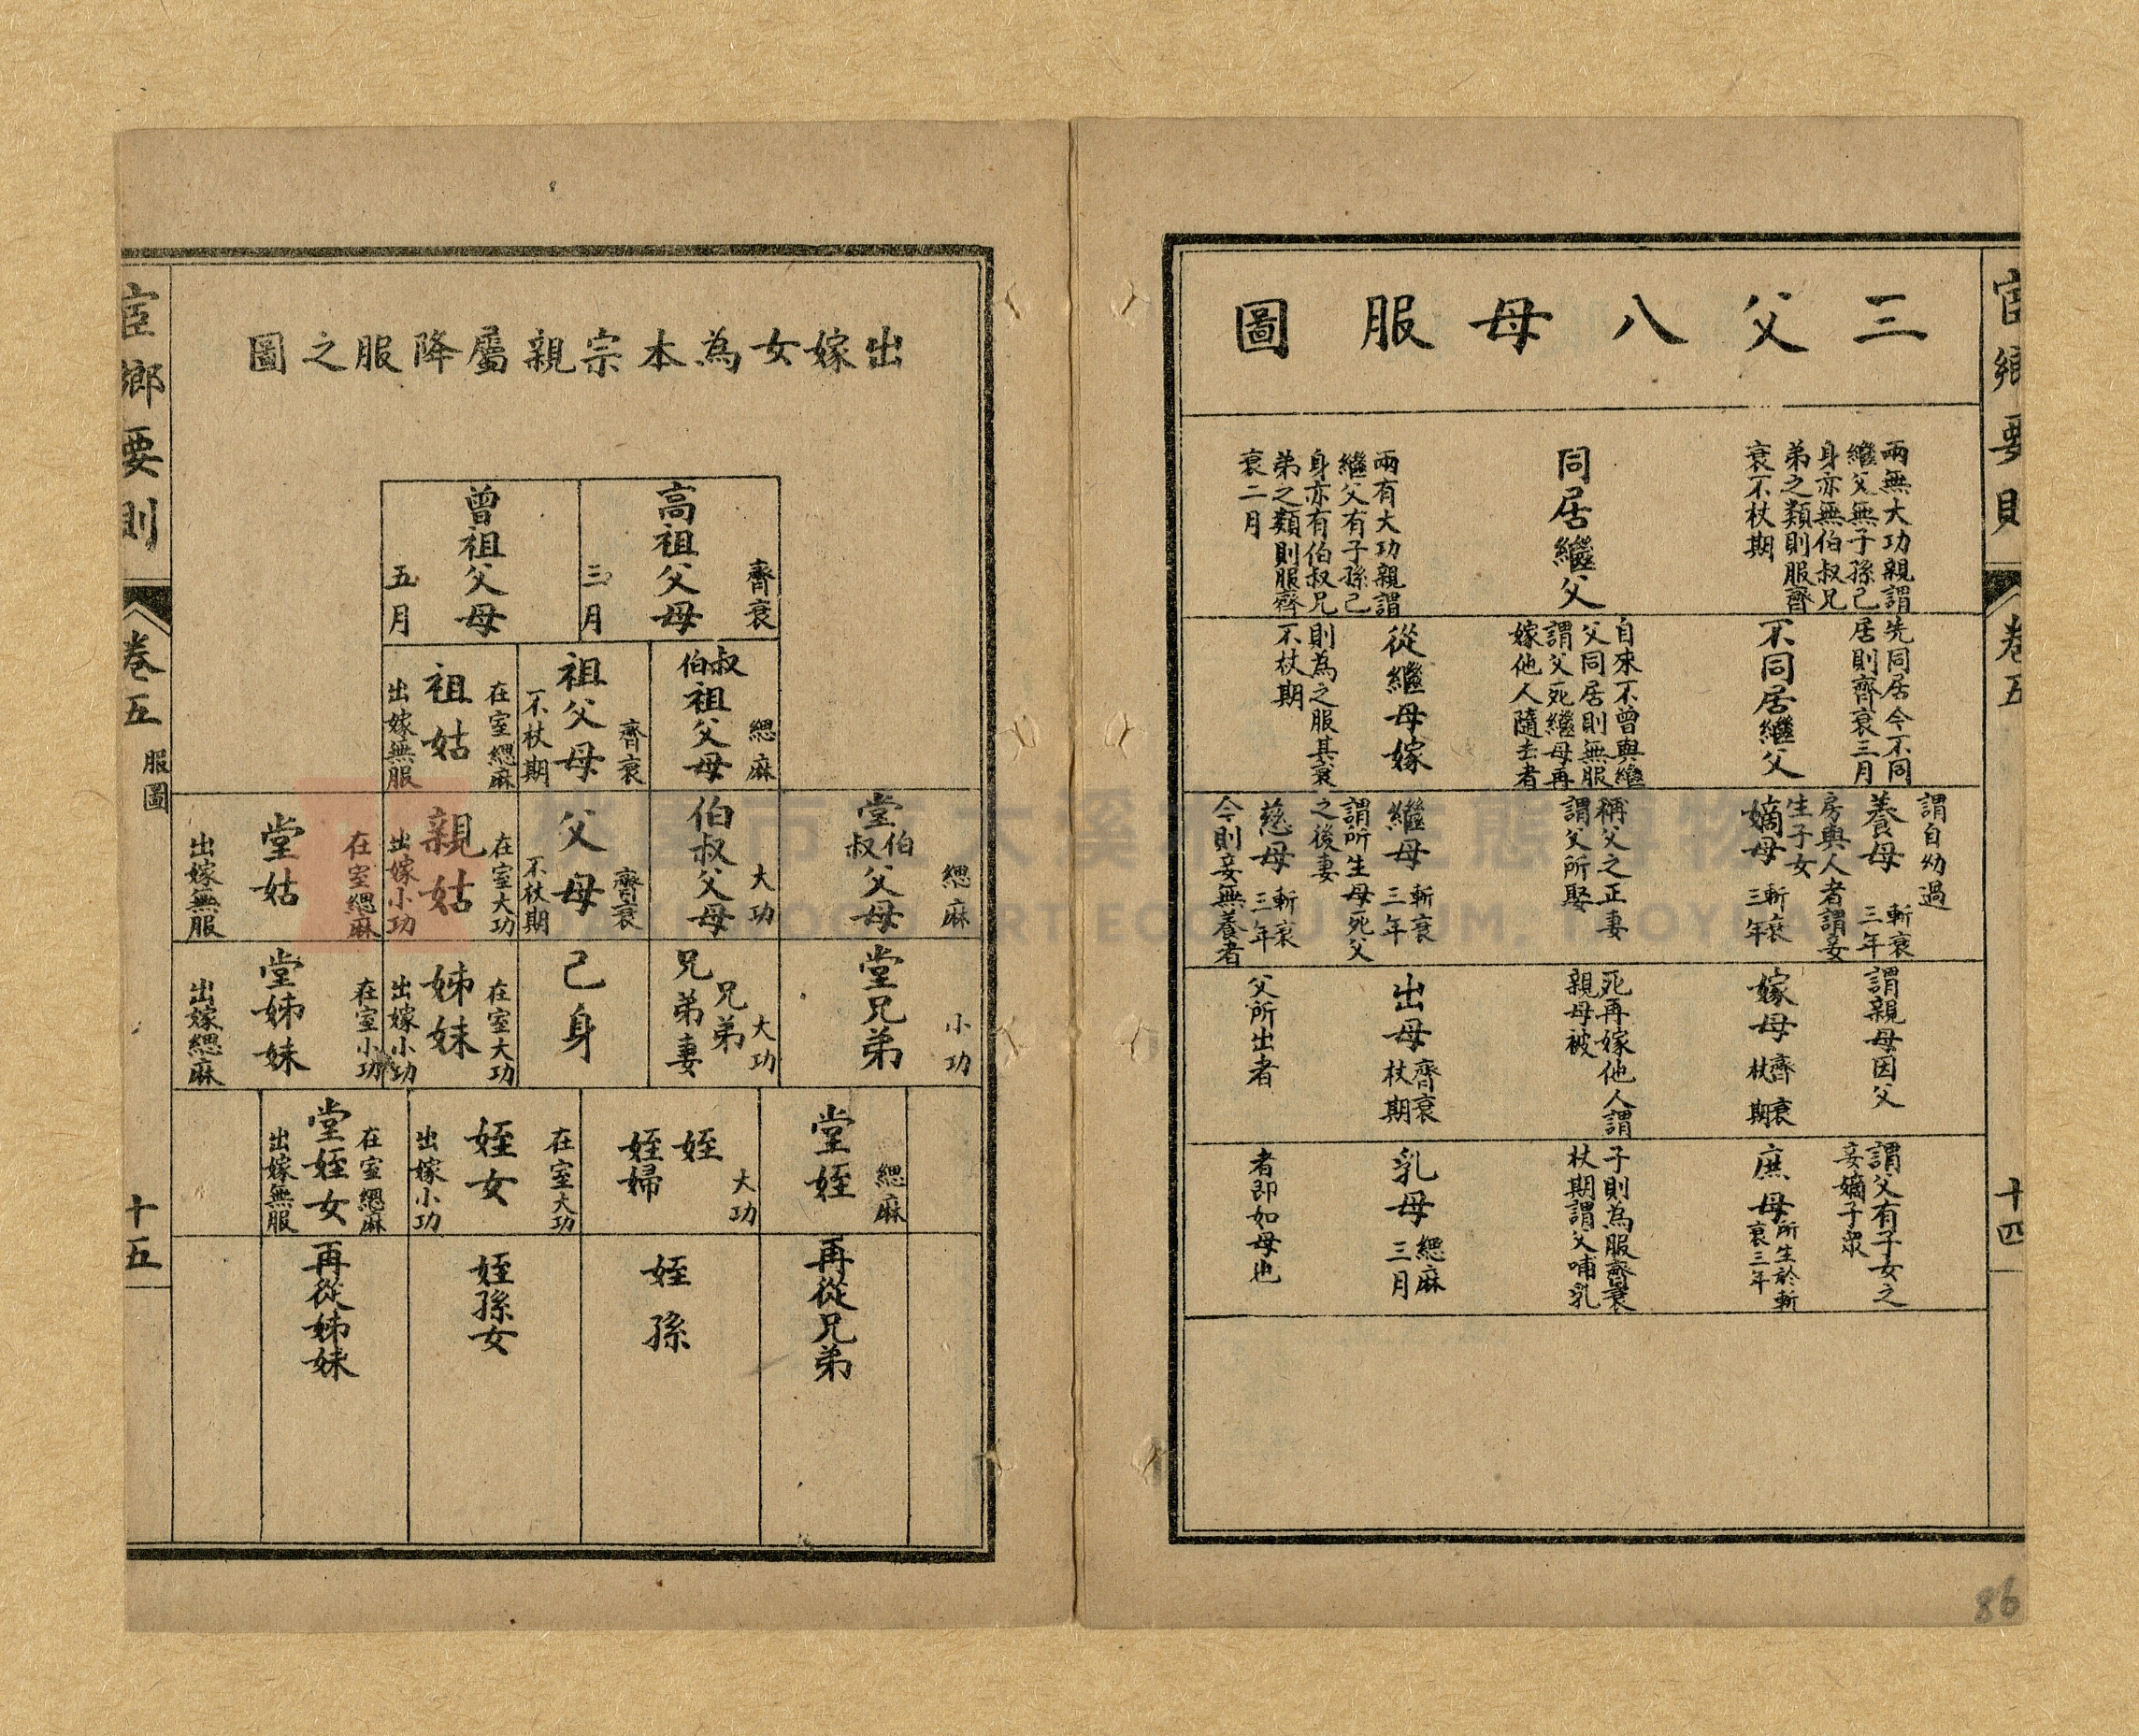 三父八母服圖
兩無大功親謂
繼父無子孫己
身亦無伯叔兄
弟之類則服齊
衰不杖期
同居繼父
兩有大功親謂
繼父有子孫己
身亦有伯叔兄
弟之類則服齊
衰二月
先同居今不同
居則齊衰三月
不同居繼父
自來不曾與繼
父同居則無服
謂父死繼母再
嫁他人隨去者
從繼母嫁
則為之服其衰
不杖期
謂自幼過
養母 斬衰三年
房與人者謂妾
生子女
嫡母 斬衰三年
稱父之正妻
謂父所娶
繼母 斬衰三年
謂所生母死父
之後妻
慈母 斬衰三年
令則妾無養者
謂親母因父
嫁母 齊衰杖期
死再嫁他人謂
親母被
出母 齊衰杖期
父所出者
謂父有子女之
妾嫡子眾
庶母 所生於斬衰三年
子則為服齊衰
杖期謂父哺乳
乳母 緦麻三月
者即如母也
卷五
十四
86
出嫁女為本宗親屬降服之圖
高祖父母 齊衰三月
曾祖父母 五月
叔伯祖父母 緦麻
祖父母 齊衰不杖期
祖姑 在室緦麻 出嫁無服
堂伯叔父母 緦麻
伯叔父母 大功
父母 齊衰不杖期
親姑 在室大功 出嫁小功
堂姑 在室緦麻 出嫁無服
堂兄弟 小功
兄弟 兄弟妻 大功
己身
姊妹 在室大功 出嫁小功
堂姊妹 在室小功 出嫁緦麻
堂姪 緦麻
姪 姪婦 大功
姪女 在室大功 出嫁小功
堂姪女 在室緦麻 出嫁無服
再從兄弟
姪孫
姪孫女
再從姊妹
宦鄉要則
卷五 服圖
十五